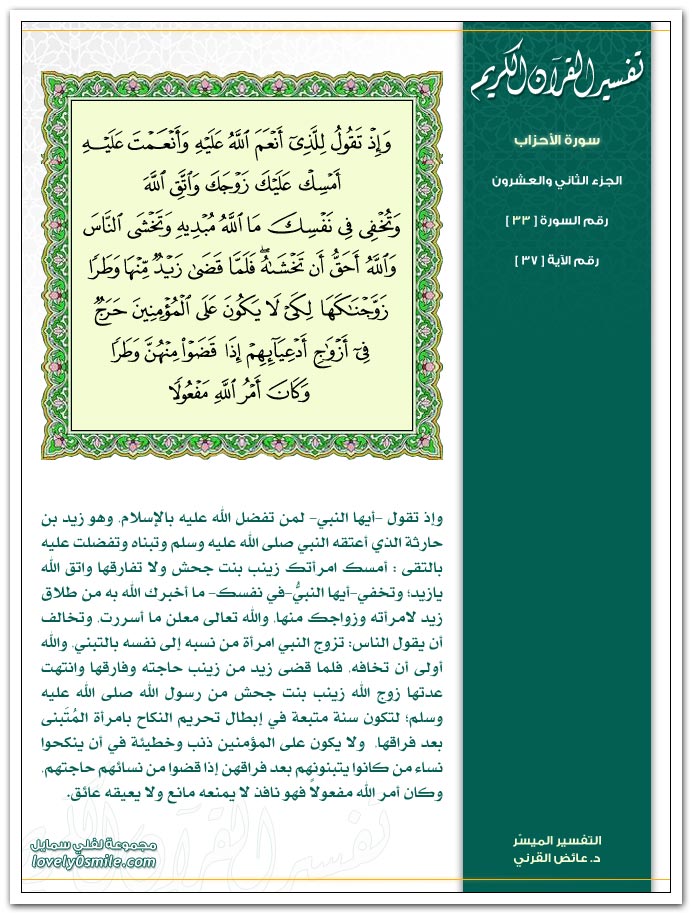 تفسير القرآن الكريم
سورة الأحزاب
الجزء الثاني والعشرون
رقم السورة [ ٣٣ ]
رقم الآية [ ٣٧ ]
وَإِذْ تَقُولُ لِلَّذِىٓ أَنْعَمَ ٱللَّهُ عَلَيْهِ وَأَنْعَمْتَ عَلَيْهِ
أَمْسِكْ عَلَيْكَ زَوْجَكَ وَٱتَّقِ ٱللَّهَ
وَتُخْفِى فِى نَفْسِكَ مَا ٱللَّهُ مُبْدِيهِ وَتَخْشَى ٱلنَّاسَ
وَٱللَّهُ أَحَقُّ أَن تَخْشَىٰهُ ۖ فَلَمَّا قَضَىٰ زَيْدٌ مِّنْهَا وَطَرًا
زَوَّجْنَٰكَهَا لِكَىْ لَا يَكُونَ عَلَى ٱلْمُؤْمِنِينَ حَرَجٌ
فِىٓ أَزْوَٰجِ أَدْعِيَآئِهِمْ إِذَا قَضَوْا۟ مِنْهُنَّ وَطَرًا
وَكَانَ أَمْرُ ٱللَّهِ مَفْعُولًا
وإذ تقول -أيها النبي- لمن تفضل الله عليه بالإسلام، وهو زيد بن
حارثة الذي أعتقه النبي صلى الله عليه وسلم وتبناه وتفضلت عليه
بالتقى : أمسك امرأتك زينب بنت جحش ولا تفارقها واتق الله
يازيد؛ وتخفي-أيها النبيُّ-في نفسك- ما أخبرك الله به من طلاق
زيد لامرأته وزواجك منها، والله تعالى معلن ما أسررت، وتخالف
أن يقول الناس: تزوج النبي امرأة من نسبه إلى نفسه بالتبني، والله
أولى أن تخافه، فلما قضى زيد من زينب حاجته وفارقها وانتهت
عدتها زوج الله زينب بنت جحش من رسول الله صلى الله عليه
وسلم؛ لتكون سنة متبعة في إبطال تحريم النكاح بامرأة المُتَبنى
بعد فراقها،  ولا يكون على المؤمنين ذنب وخطيئة في أن ينكحوا
نساء من كانوا يتبنونهم بعد فراقهن إذا قضوا من نسائهم حاجتهم،
وكان أمر الله مفعولاً فهو نافذ لا يمنعه مانع ولا يعيقه عائق.
التفسير الميسّر
د. عائض القرني
مجموعة لفلي سمايل
lovely0smile.com
تفسير القرآن الكريم